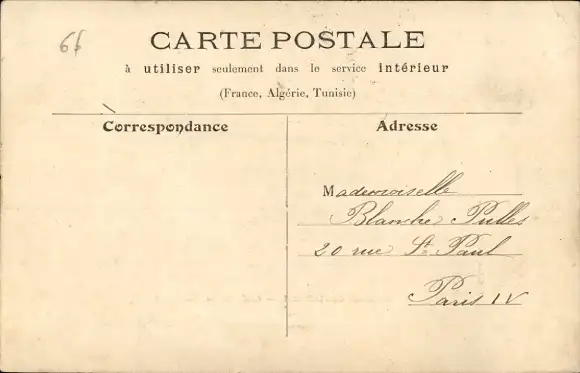 6f
CARTE POSTALE
à utiliser seulement dans le service intérieur
(France, Algérie, Tunisie)
Correspondance
Adresse
Mademoiselle
Blanche Pulles
20 rue St Paul
Paris IV